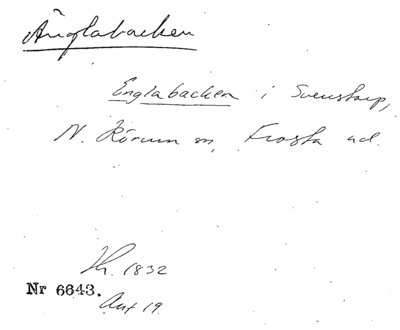 Änglabacken
Englabacken i Svenstorp,
N. Rörum sn, Frosta hd.
Th. 1832
Nr 6643.
Ant 19.